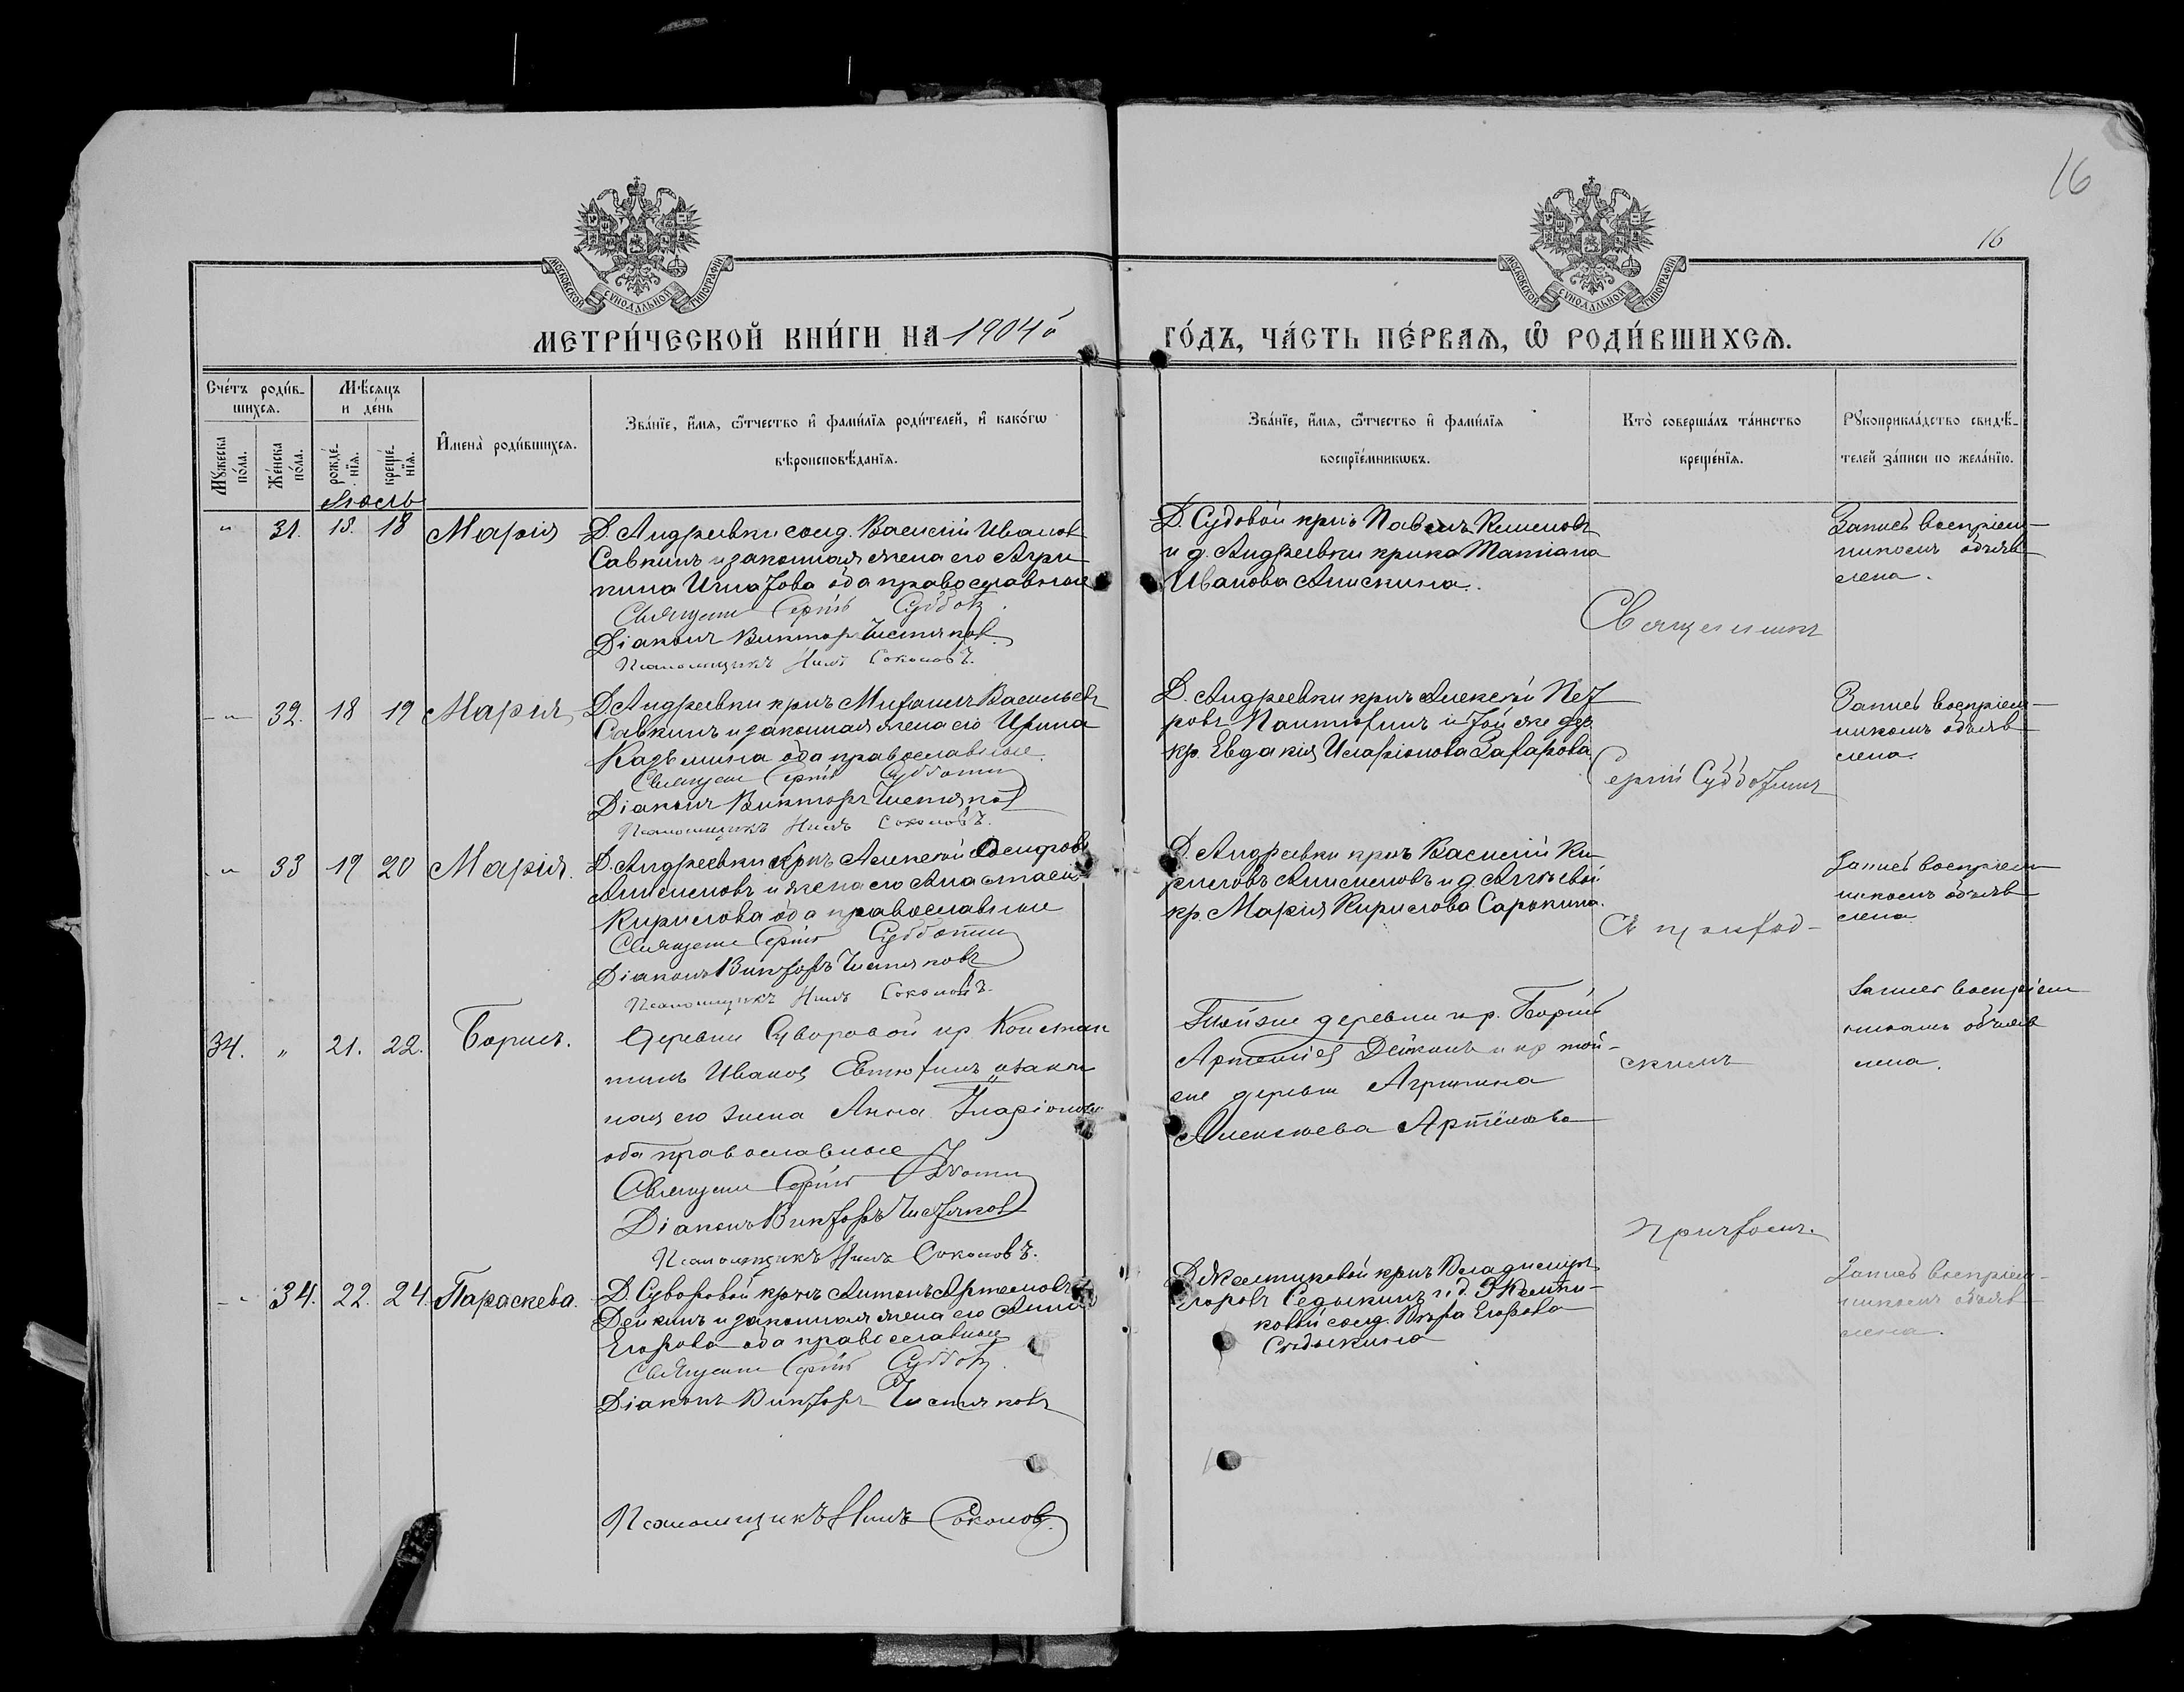 16
16
МОСКОВСКОЙ СѴНОДАЛЬНОЙ ТИПОГРАФІИ
МОСКОВСКОЙ СѴНОДАЛЬНОЙ ТИПОГРАФІИ
МЕТРИ́ЧЕСКОЙ КНИ́ГИ НА 1904й
ГО́ДЪ, ЧА́СТЬ ПЕ́РВАѦ, Ѡ РОДИ́ВШИХСѦ.
Сче́тъ роди́в-
шихсѧ.
Мѣ́сяцъ
и де́нь
Мꙋ́жеска по́ла.
Же́нска по́ла.
рожде́-нїѧ.
креще́-нїѧ.
И҆мена̀ роди́вшихсѧ.
Зва́нїе, и҆́мѧ, ѻ҆́тчество и҆ фами́лїѧ роди́телей, и҆ како́гѡ
вѣроисповѣ́данїѧ.
Зва́нїе, и҆́мѧ, ѻ҆́тчество и҆ фами́лїѧ
воспрїе́мникѡвъ.
Кто̀ соверша́лъ та́инство
креще́нїѧ.
Рꙋкоприкла́дство свидѣ́-
телей за́писи по жела́нїю.
31. 18. 18 Марія
Д. Андреевки солд. Василій Иванов
Савкинъ и законная жена его Агри
пина Игнатова оба православные
Священ Сергій Суббот
Діаконъ Викторъ Чистяков
Псаломщикъ Нилъ Соколовъ.
Д. Судовой кр-нъ Павелъ
и д. Андреевки кр-ка Татіана
Иванова Анискина.
Священникъ
Запись воспріем-
никомъ объяв
лена.
32. 18 19 Марія
Д. Андреевки кр-нъ Михаилъ Васильевъ
Савкинъ и законная жена его Ирина
Казьмина оба православные.
Священ Сергій Субботин
Діаконъ Викторъ Чистяков
Псаломщикъ Нилъ Соколовъ.
Д. Андреевки кр-нъ Алексѣй Пет
ровъ Пантюхинъ и той же дер.
кр. Евдокія Иларіонова Захарова.
Сергій Субботинъ
Запись воспріем-
никомъ объяв
лена.
33 19 20 Марія.
Д. Андреевки кр-нъ Алексѣй
Анисимовъ и жена его Анастасія
Кирилова оба православные
Священ Сергій Субботин
Діаконъ Викторъ Чистяковъ
Псаломщикъ Нилъ Соколовъ.
Д. Андреевки кр-нъ Василій Ки
риловъ Анисимовъ и д.
кр. Марія Кирилова Сорокина.
Съ приход-
Запись воспріем
никомъ объяв
лена.
34. " 21. 22. Борисъ.
Деревни Суворовой кр. Констан
тинъ Иванов Евтюхинъ и закон
ная его жена Анна Иларіонова
оба православные
Священ Сергій Субботин
Діаконъ Викторъ Чистяков
Псаломщикъ Нилъ Соколовъ.
Той же деревни кр.
Дейкинъ и кр той-
же деревни Агрипина
Алексѣева Артёмова
скимъ
Запись воспріем
никомъ объяв
лена.
причтомъ.
34. 22. 24. Параскева.
Д. Суворовой кр-нъ Антонъ Артемовъ
Дейкинъ и законная жена его Анна
Егорова оба православные
Священ Сергій Суббот
Діаконъ Викторъ Чистяковъ
Псаломщикъ Нилъ Соколов.
Д. Желтиковой кр-нъ Владимиръ
Егоровъ Седыкинъ и д. Желти-
ковой солд. Вѣра Егорова
Седыкина
Запись воспріем-
никомъ объяв
лена.